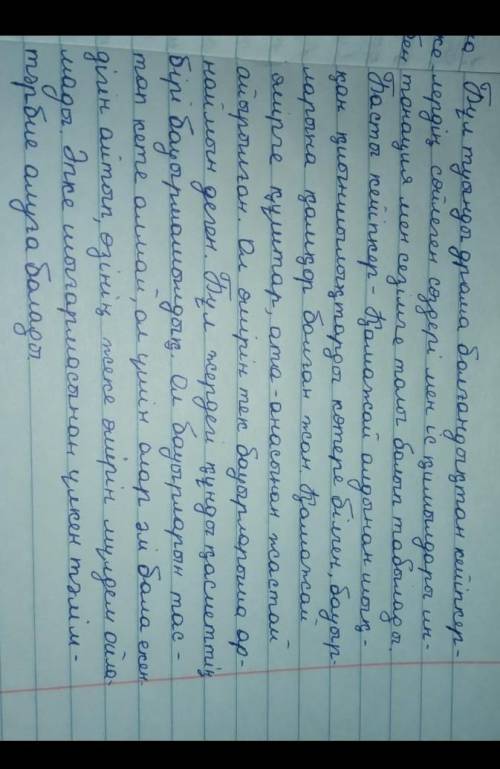 Бұл туынды драма болғандықтан кейіпкер-
лердің сөйлеген сөздері мен іс қимылдары ин-
тонация мен сезімге толы болып табылады.
Басты кейіпкер - Қамажай алдынан шық-
қан қиыншылықтарды көтере білген, бауыр-
ларына қамқор болған жан. Қамажай
өмірге құштар, ата-анасынан жастай
айырылған. Ол өмірін тек бауырларыма ар-
наймын деген. Бұл жердей құнды қасиеттің
бірі бауырмашылдық. Ол бауырларын тас-
тап кете алмай, ол үшін олар әлі бала екен-
дігін айтып, өзінің жеке өмірін мүлдем ойла-
мады. Әпке шығармасынан үлкен тәлім-
тәрбие алуға болады